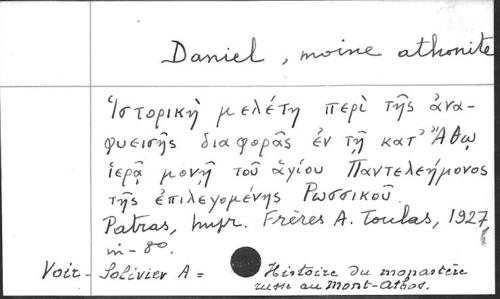 Daniel, moine athonite
Ἱστορικὴ μελέτη περὶ τῆς ἀνα-
φυεισης διαφορᾶς ἐν τῇ κατ' Ἄθῳ
ἱερᾷ μονῇ τοῦ ἁγίου Παντελεήμονος
τῆς ἐπιλεγομένης Ρωσσικοῦ.
Patras, Impr. Frères A. Toulas, 1927,
in-8º.
Voir - Solivier A =
Histoire du monastère
russe au Mont-Athos.